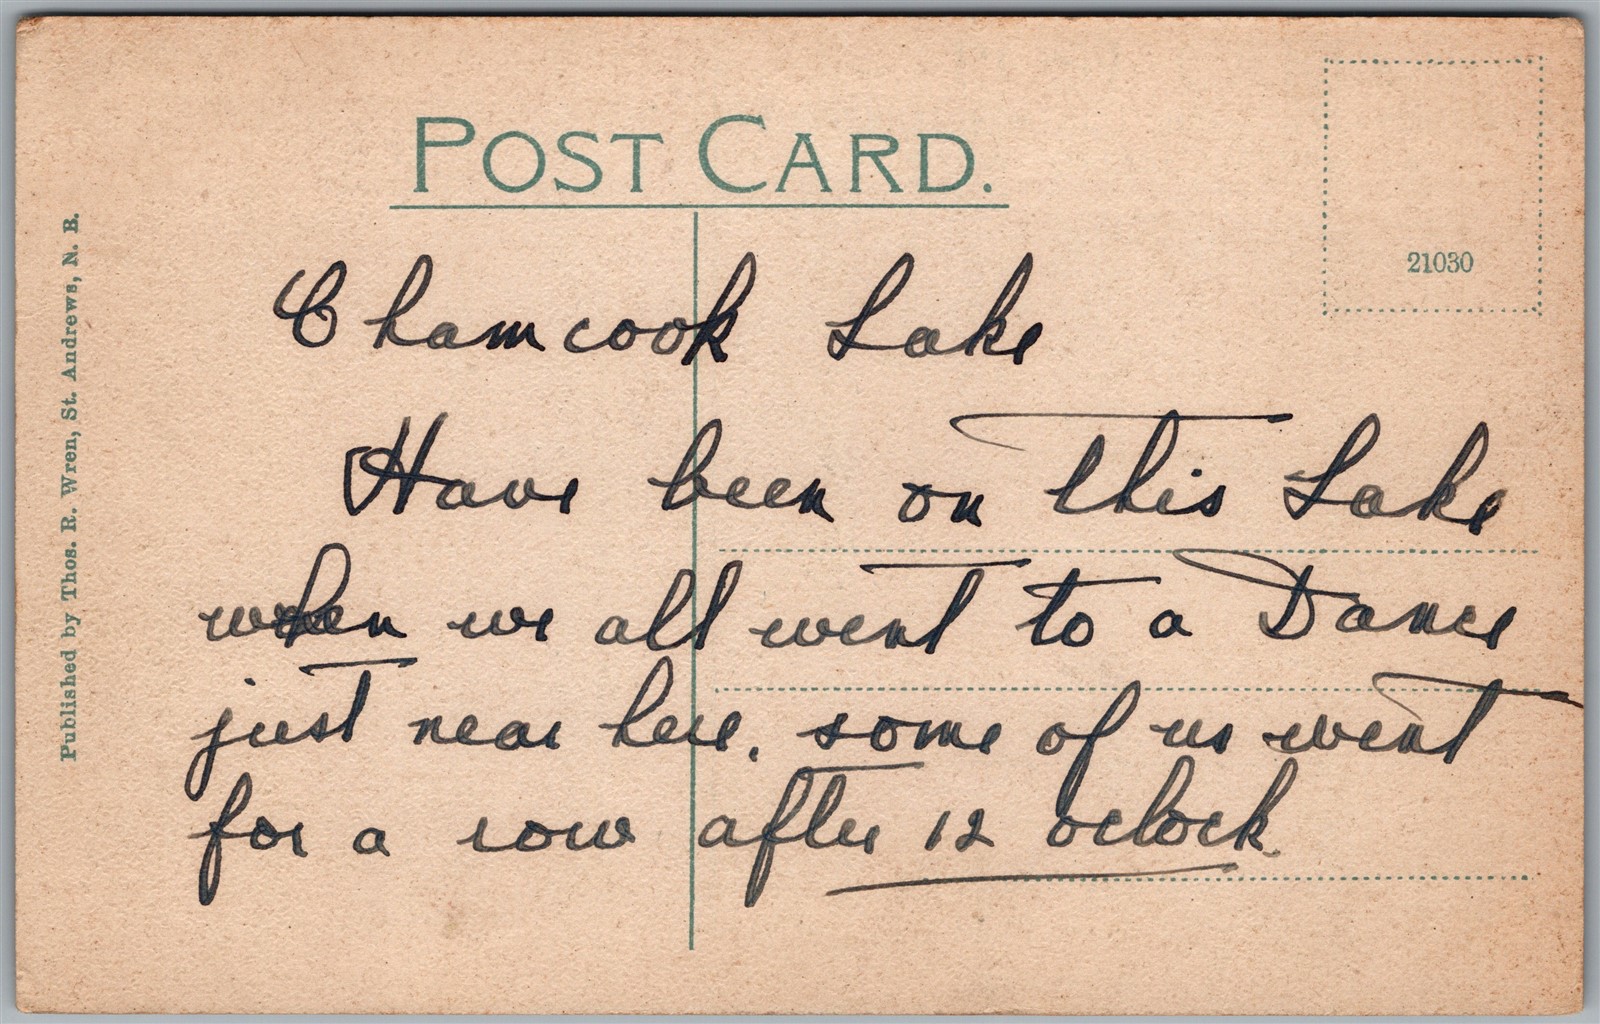 POST CARD.
21030
Published by Thos. R. Wren, St. Andrews, N. B.
Chamcook Lake
Have been on this Lake
when we all went to a Dance
just near here. some of us went
for a row after 12 oclock.